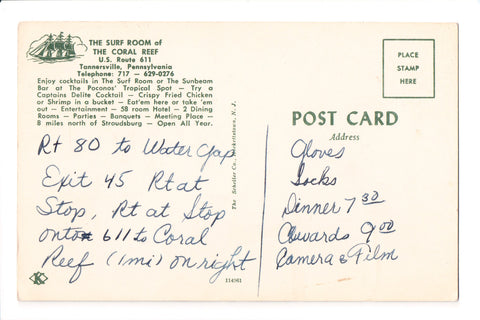 THE SURF ROOM of
THE CORAL REEF
U.S. Route 611
Tannersville, Pennsylvania
Telephone: 717 — 629-0276
Enjoy cocktails in The Surf Room or The Sunbeam
Bar at The Poconos' Tropical Spot — Try a
Captains Delite Cocktail — Crispy Fried Chicken
or Shrimp in a bucket — Eat'em here or take 'em
out — Entertainment — 58 room Hotel — 2 Dining
Rooms — Parties — Banquets — Meeting Place —
8 miles north of Stroudsburg — Open All Year.
Rt 80 to Water Gap
Exit 45 Rt at
Stop, Rt at Stop
onto 611 to Coral
Reef (1 mi) on right
K
The Scheller Co., Hackettstown, N. J.
114561
PLACE
STAMP
HERE
POST CARD
Address
Gloves
Socks
Dinner 7 30
Awards 9 00
Camera & Film